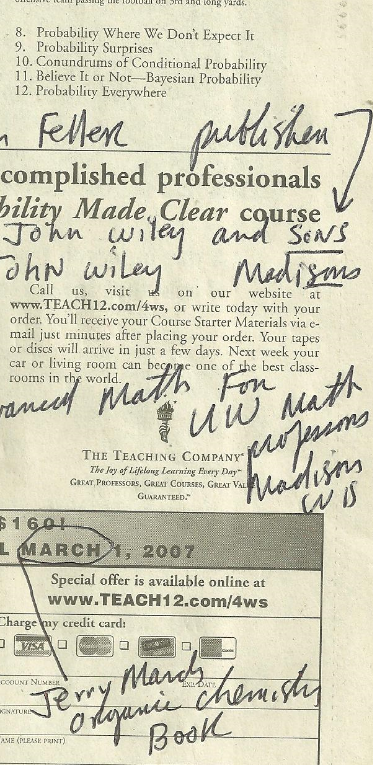 offensive team passing the football on 3rd and long yards.
8. Probability Where We Don't Expect It
9. Probability Surprises
10. Conundrums of Conditional Probability
11. Believe It or Not—Bayesian Probability
12. Probability Everywhere
n Feller publisher
complished professionals
bility Made Clear course
John Wiley and SONS
John Wiley Madisons
Call us, visit us on our website at
www.TEACH12.com/4ws, or write today with your
order. You'll receive your Course Starter Materials via e-
mail just minutes after placing your order. Your tapes
or discs will arrive in just a few days. Next week your
car or living room can become one of the best class-
rooms in the world.
vanced Math For
UW Math
professors
Madison
WIS
THE TEACHING COMPANY®
The Joy of Lifelong Learning Every Day™
GREAT PROFESSORS, GREAT COURSES, GREAT VAL
GUARANTEED.™
$160!
L MARCH 1, 2007
Special offer is available online at
www.TEACH12.com/4ws
Charge my credit card:
VISA
ACCOUNT NUMBER EXP. DATE
Jerry March
SIGNATURE
organic chemistry
NAME (PLEASE PRINT)
Book